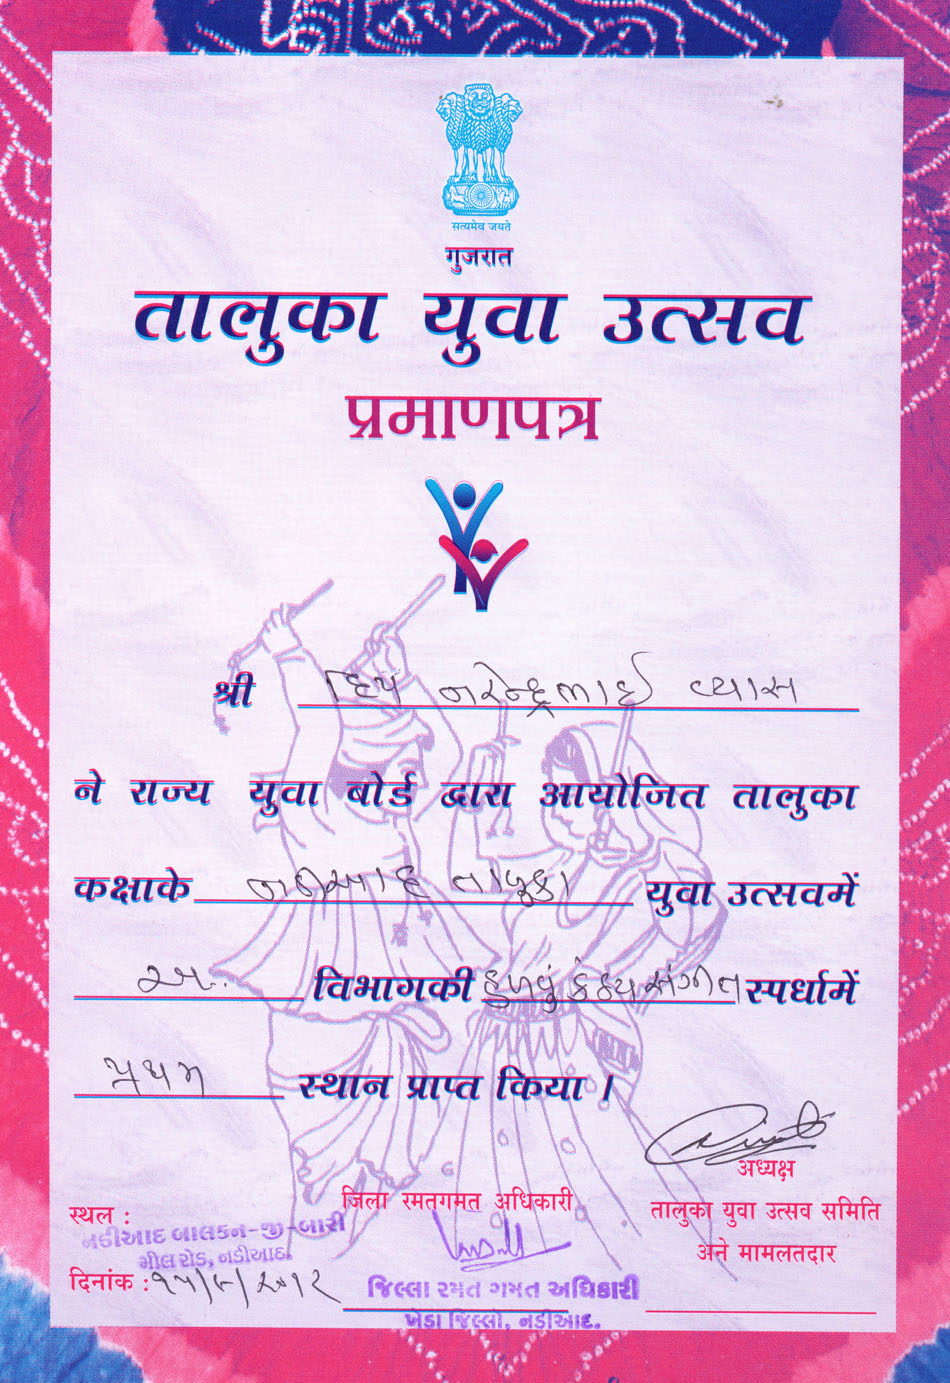 सत्यमेव जयते
गुजरात
तालुका युवा उत्सव
प्रमाणपत्र
श्री દિપ નરેન્દ્રભાઈ વ્યાસ
ने राज्य युवा बोर्ड द्वारा आयोजित तालुका
कक्षाके નડીઆદ તાલુકા युवा उत्सवमें
અ. विभागकी હળવું કંઠય સંગીત स्पर्धामें
પ્રથમ स्थान प्राप्त किया ।
अध्यक्ष
जिला रमतगमत अधिकारी
तालुका युवा उत्सव समिति
अने मामलतदार
स्थल :
નડીઆદ બાલકન-જી-બારી
મીલ રોડ, નડીઆદ.
दिनांक : ૧૫/૮/૨૦૧૨
જિલ્લા રમત ગમત અધિકારી
ખેડા જિલ્લો, નડીઆદ.